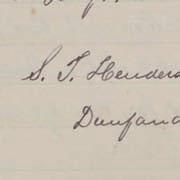 S. T. Henders
Dunfand